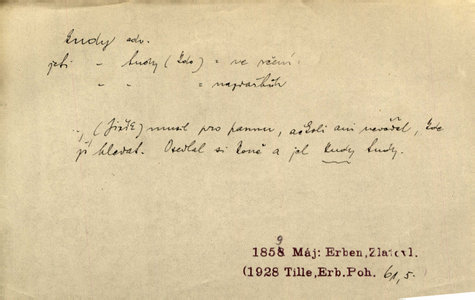 kudy adv.
jeti - kudy (kdo) = ve rčení:
" - " = nazdařbůh
„(Jiřík) musil pro pannu, ačkoli ani nevěděl, kde
ji hledat. Osedlal si koně a jel kudy tudy.
1859 Máj: Erben, Zlatovl.
(1928 Tille, Erb. Poh. 61,5.